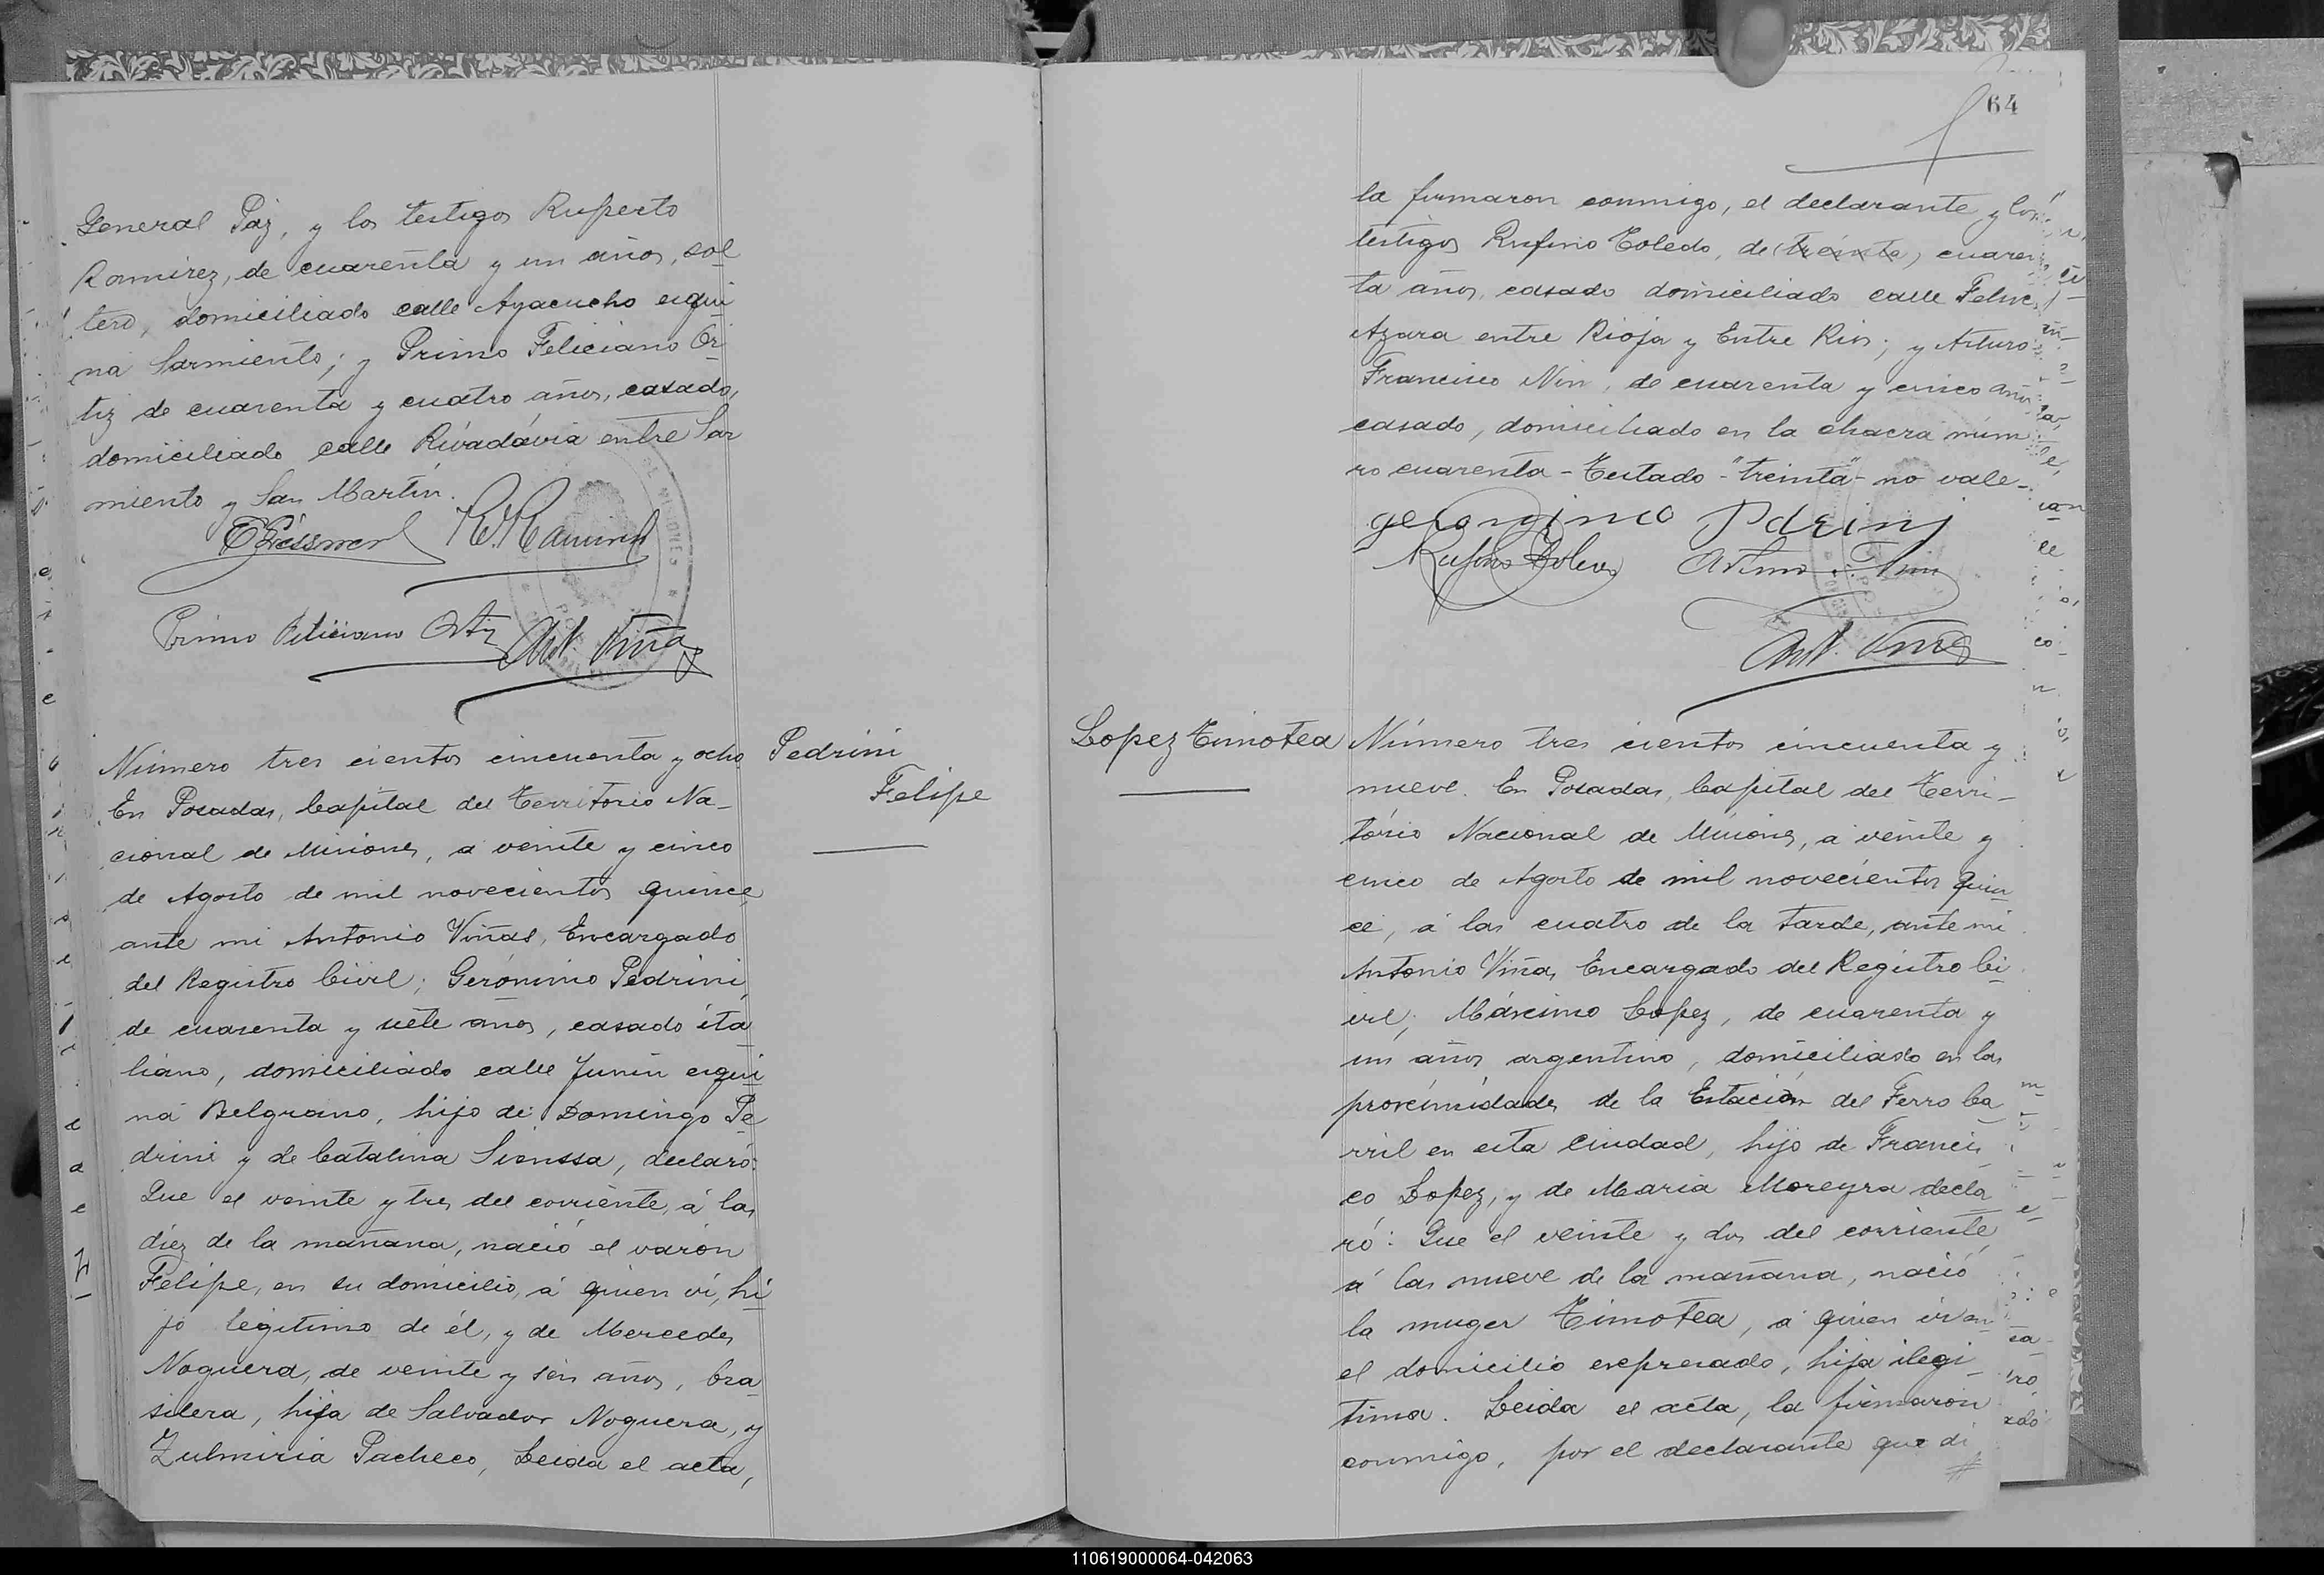 General Paz, y los testigos Ruperto
Ramirez, de cuarenta y un años, sol
tero, domiciliado calle Ayacucho esqui
na Sarmiento; y Primo Feliciano Or
tiz de cuarenta y cuatro años, casado,
domiciliado calle Rivadavia entre Sar
miento y San Martin.
R. Ramirez
Primo Feliciano Ortiz Ant. Viñas
Pedrini
Felipe
Número tres cientos cincuenta y ocho
En Posadas, Capital del Territorio Na-
cional de Misiones, a veinte y cinco
de Agosto de mil novecientos quince,
ante mi Antonio Viñas, Encargado
del Registro Civil; Gerónimo Pedrini,
de cuarenta y siete años, casado ita
liano, domiciliado calle Junin esqui
na Belgrano, hijo de Domingo Pe
drini y de Catalina Sienssa, declaró:
Que el veinte y tres del corriente, á las
diez de la mañana, nació el varón
Felipe, en su domicilio, á quien vi, hi
jo legitimo de él, y de Mercedes
Noguera, de veinte y seis años, bra
silera, hija de Salvador Noguera, y
Zulmiria Pacheco, Leida el acta,
64
la firmaron conmigo, el declarante y los
testigos Rufino Toledo, de (treinta) cuaren
ta años, casado domiciliado calle Felix
Azara entre Rioja y Entre Rios; y Arturo
Francisco Nin, de cuarenta y cinco años
casado, domiciliado en la chacra núme
ro cuarenta - Testado - "treinta" - no vale -
geronimo Pdrini
Rufino Toledo Arturo F. Nin
Ant. Viñas
Lopez Timotea
Número tres cientos cincuenta y
nueve. En Posadas, Capital del Terri-
tório Nacional de Misiones, a veinte y
cinco de Agosto de mil novecientos quin
ce, á las cuatro de la tarde, ante mi
Antonio Viñas, Encargado del Registro Ci
vil; Máximo Lopez, de cuarenta y
un años argentino, domiciliado en las
proximidades de la Estación del Ferro Ca
rril en esta Ciudad, hijo de Francis
co Lopez, y de Maria Moreyra decla
ró: Que el veinte y dos del corriente
á las nueve de la mañana, nació
la muger Timotea, á quien vi en
el domicilio expresado, hija ilegi
tima. Leida el acta, la firmaron
conmigo, por el declarante que di
110619000064-042063